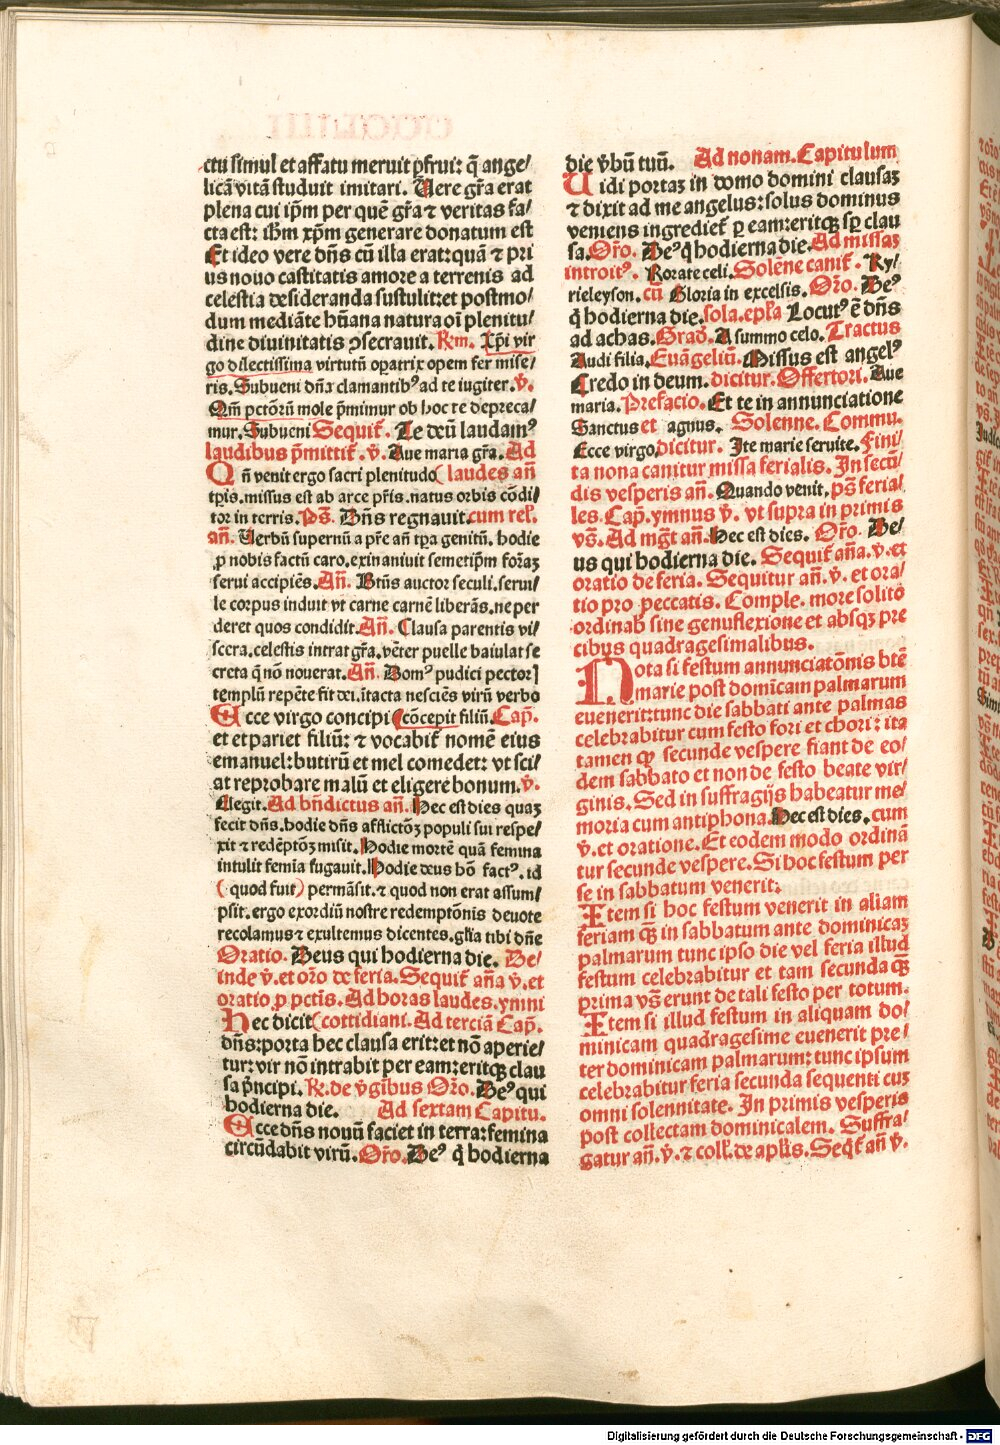 ctu simul et affatu meruit p̄frui: q̄ ange/
licā vitā studuit imitari. Uere gr̄a erat
plena cui ip̄m per quē gr̄a ⁊ veritas fa/
cta est: ih̄m xp̄m generare donatum est
Et ideo vere dn̄s cū illa erat: quā ⁊ pri
us nouo castitatis amore a terrenis ad
celestia desideranda sustulit: et postmo/
dum mediāte hūana natura oī plenitu/
dine diuinitatis ꝯsecrauit. Rm̄. Xp̄i vir
go dilectissima virtutū oꝑatrix opem fer mise/
ris. Subueni dn̄a clamantibꝰ ad te iugiter. v̄.
Qm̄ pctōrū mole p̄mimur ob hoc te depreca/
mur. Subueni Sequit̄. Te deū laudamꝰ
laudibus p̄mittit̄. v̄. Aue maria gr̄a. Ad
Qn̄ venit ergo sacri plenitudo (laudes an̄
tp̄is. missus est ab arce pr̄is. natus orbis cōdi/
tor in terris. Ps̄. Dn̄s regnauit. cum rel̄.
an̄. Uerbū supernū a pr̄e an̄ tp̄a genitū. hodie
ꝓ nobis factū caro. exinaniuit semetip̄m formāꝫ
serui accipiēs. An̄. Btn̄s auctor seculi. serui/
le corpus induit vt carne carnē liberās. ne per
deret quos condidit. An̄. Clausa parentis vi/
scera. celestis intrat gr̄a. vēter puelle baiulat se
creta q̄ nō nouerat. An̄. Domꝰ pudici pectorꝭ
templū repēte fit dei. ītacta nesciēs virū verbo
Ecce virgo concipi (cōcepit filiū. Cap̄.
et et pariet filiū: ⁊ vocabit̄ nomē eius
emanuel: butirū et mel comedet: vt sci/
at reprobare malū et eligere bonum. v̄.
Elegit. Ad bn̄dictus an̄. Hec est dies quaꝫ
fecit dn̄s. hodie dn̄s afflictōꝫ populi sui respe/
xit ⁊ redēptōꝫ misit. Hodie mortē quā femina
intulit femīa fugauit. Hodie deus hō factꝰ. id
(quod fuit) permāsit. ⁊ quod non erat assum/
psit. ergo exordiū nostre redemptōnis deuote
recolamus ⁊ exultemus dicentes. gl̄ia tibi dn̄e
Oratio. Deus qui hodierna die. De/
inde v̄. et or̄o de feria. Sequit̄ an̄a v̄. et
oratio ꝓ pctis. Ad horas laudes. ymni
Hec dicit (cottidiani. Ad terciā Cap̄.
dn̄s: porta hec clausa erit: et nō aperie/
tur: vir nō intrabit per eam: eritqꝫ clau
sa p̄ncipi. R̄. de v̄gibus Or̄o. Deꝰ qui
hodierna die. Ad sextam Capitu.
Ecce dn̄s nouū faciet in terra: femina
circūdabit virū. Or̄o. Deꝰ q̄ hodierna
die v̄bū tuū. Ad nonam. Capitulum
Uidi portaꝫ in domo domini clausaꝫ
⁊ dixit ad me angelus: solus dominus
veniens ingrediet̄ ꝑ eam: eritqꝫ sp̄ clau
sa. Or̄o. Deꝰ q̄ hodierna die. Ad missaꝫ
introitꝰ. Rorate celi. Solēne canit̄. Ky/
rieleyson. cū Gloria in excelsis. Or̄o. Deꝰ
q̄ hodierna die. sola. epl̄a Locutꝰ ē dn̄s
ad achas. Grad̄. A summo celo. Tractus
Audi filia. Euāgeliū. Missus est angelꝰ
Credo in deum. dicitur. Offertori. Aue
maria. Prefacio. Et te in annunciatione
Sanctus et agnus. Solenne. Commu.
Ecce virgo. Dicitur. Ite marie seruite. Fini/
ta nona canitur missa ferialis. In secū/
dis vesperis an̄. Quando venit. ps̄ feria/
les. Cap̄. ymnus v̄. vt supra in primis
vs̄. Ad mgt̄ an̄. Hec est dies. Or̄o. De/
us qui hodierna die. Sequit̄ an̄a. v̄. et
oratio de feria. Sequitur an̄. v̄. et ora/
tio pro peccatis. Comple. more solito
ordinab̄ sine genuflexione et absqꝫ pre
cibus quadragesimalibus.
Nota si festum annunciatōnis btē
marie post domīcam palmarum
euenerit: tunc die sabbati ante palmas
celebrabitur cum festo fori et chori: ita
tamen ꝙ secunde vespere fiant de eo/
dem sabbato et non de festo beate vir/
ginis. Sed in suffragijs habeatur me/
moria cum antiphona. Hec est dies. cum
v̄. et oratione. Et eodem modo ordinā
tur secunde vespere. Si hoc festum per
se in sabbatum venerit:
Item si hoc festum venerit in aliam
feriam ꝙ̄ in sabbatum ante dominicaꝫ
palmarum tunc ipso die vel feria illud
festum celebrabitur et tam secunda ꝙ̄
prima vs̄ erunt de tali festo per totum.
Item si illud festum in aliquam do/
minicam quadragesime euenerit pre/
ter dominicam palmarum: tunc ipsum
celebrabitur feria secunda sequenti cuꝫ
omni solennitate. In primis vesperis
post collectam dominicalem. Suffra/
gatur an̄. v̄. ⁊ coll̄. de apl̄is. Seqt̄ an̄ v̄.
Digitalisierung gefördert durch die Deutsche Forschungsgemeinschaft - DFG